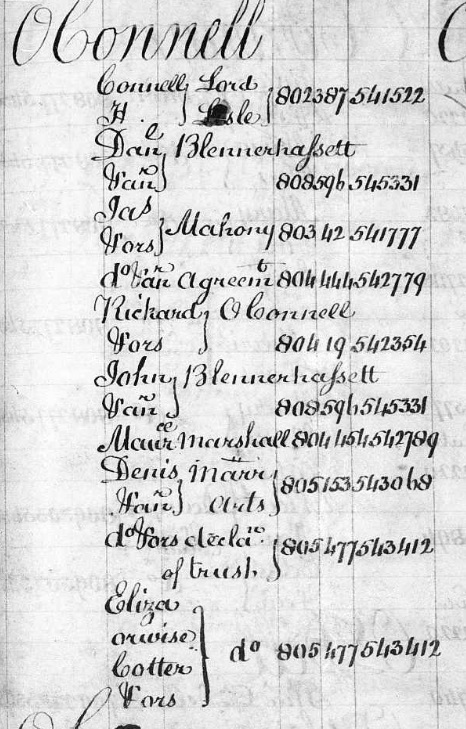 OConnell
Connell } Lord
H. } Lisle } 802387 541522
Danl Blennerhassett
& anr } 808596 545331
Jas
& ors } Mahony 80342 541777
do & anr Agreemt 804444 542779
Richard } OConnell
& ors } 80419 542354
John } Blennerhassett
& anr } 808596 545331
Maurce Marshall 804454 542789
Denis } Marr
& anr } arts } 805153 543068
do & ors declarn
of trust } 805477 543412
Eliza
orwise
Cotter } do 805477 543412
& ors